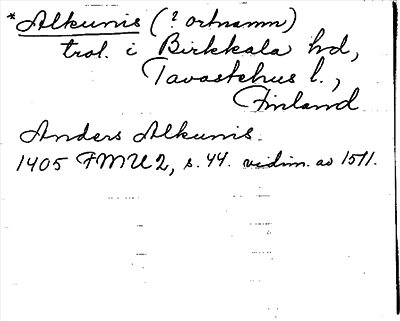 *Alkunis (? ortnamn)
trol. i Birkkala hd,
Tavastehus l.,
Finland
Anders Alkunis.
1405 FMU 2, s. 44. vidim. av 1511.